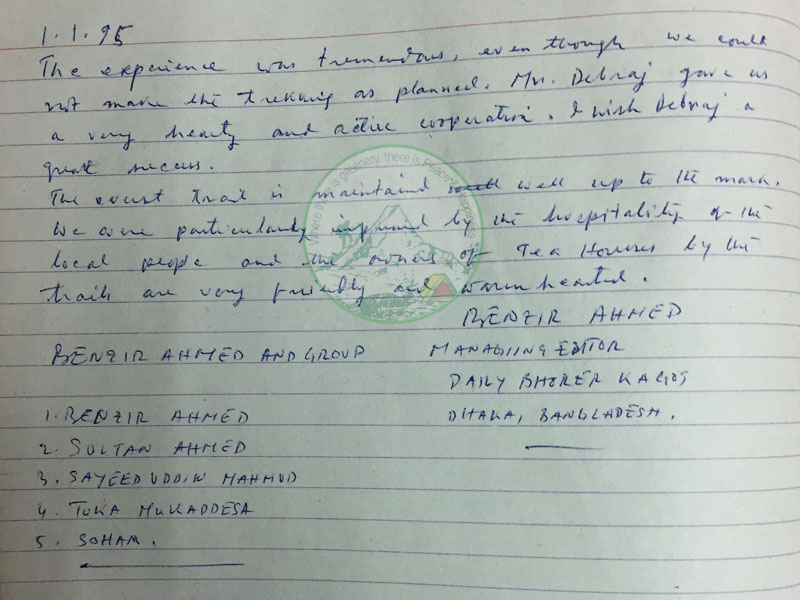 1.1.95
The experience was tremendous, even though we could
not make the trekking as planned. Mr. Debraj gave us
a very hearty and active cooperation. I wish Debraj a
great success.
The everst trail is maintaind well up to the mark.
We were particularly impressed by the hospitality of the
local people and the owners of Tea Houses by the
trails are very friendly and warm hearted.
BENZIR AHMED
BENZIR AHMED AND GROUP MANAGIING EDITOR
DAILY BHORER KAGOJ
1. BENZIR AHMED DHAKA, BANGLADESH.
2. SULTAN AHMED
3. SAYEEDUDDIN MAHMUD
4. TUKA MUKADDESA
5. SOHAM.
Where there is greenery, there is Peace